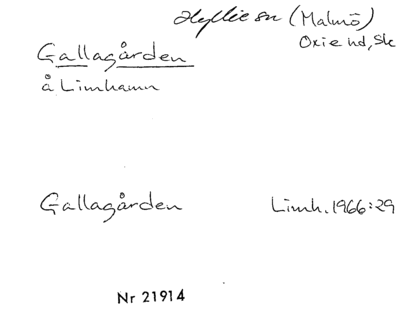 Hyllie sn (Malmö)
Oxie hd, Sk
Gallagården
å Limhamn
Gallagården Limh. 1966:29
Nr 21914